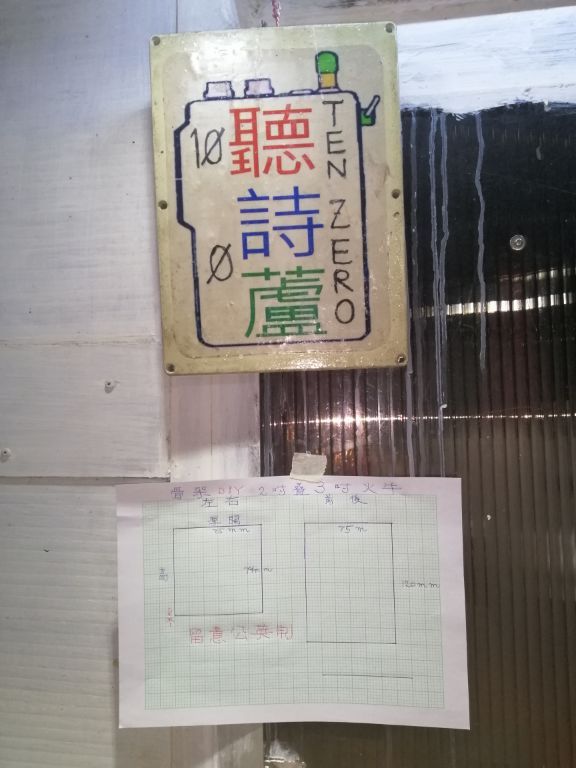 10
0
聽
詩
蘆
TEN ZERO
骨架DIY 2吋疊3吋火牛
左右
前後
75mm
75m
高
74mm
120mm
留意公英制